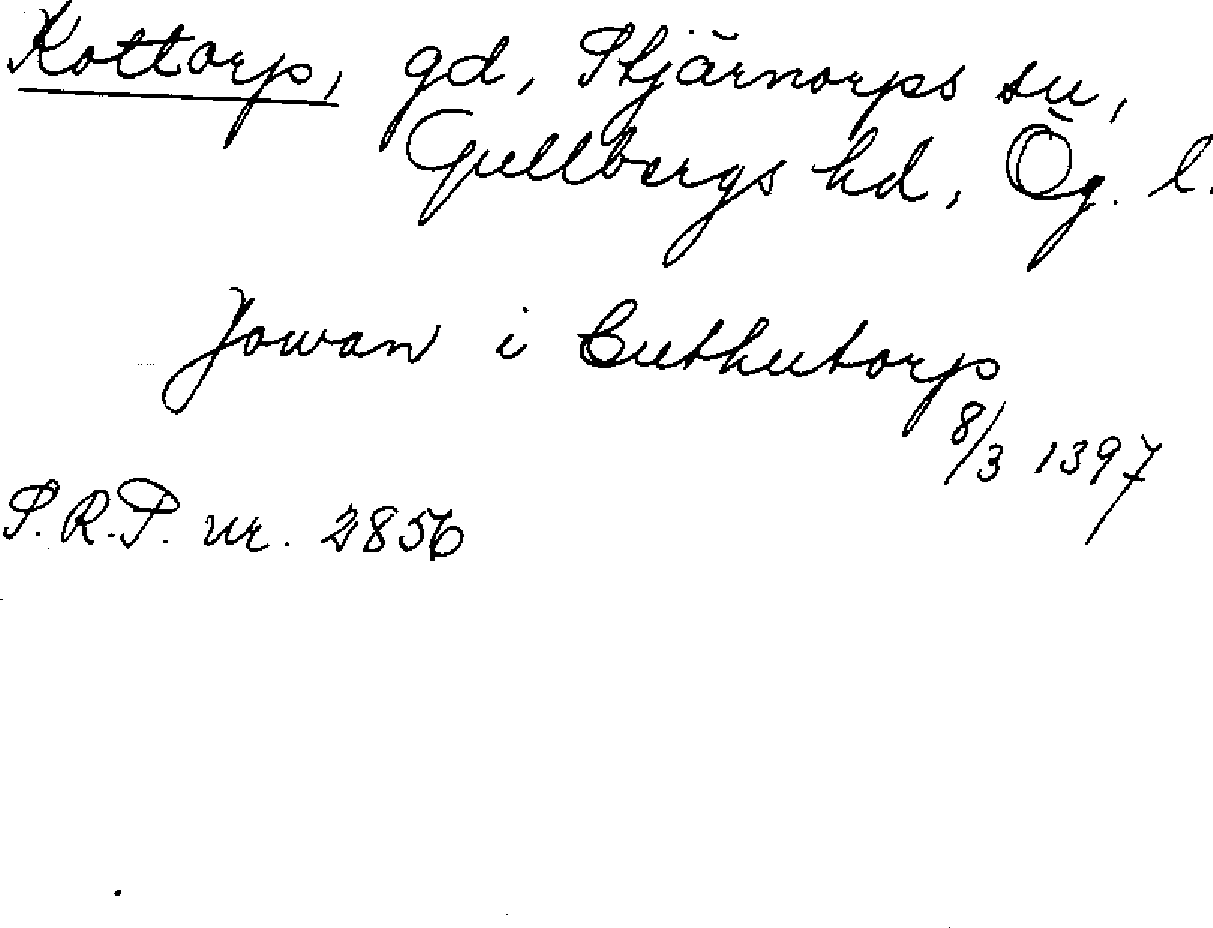 Kottorp, gd, Stjärnorps sn,
Gullbergs hd, Ög. l.
Jowan i Cuthutorp
8/3 1397
S.R.P. nr. 2856